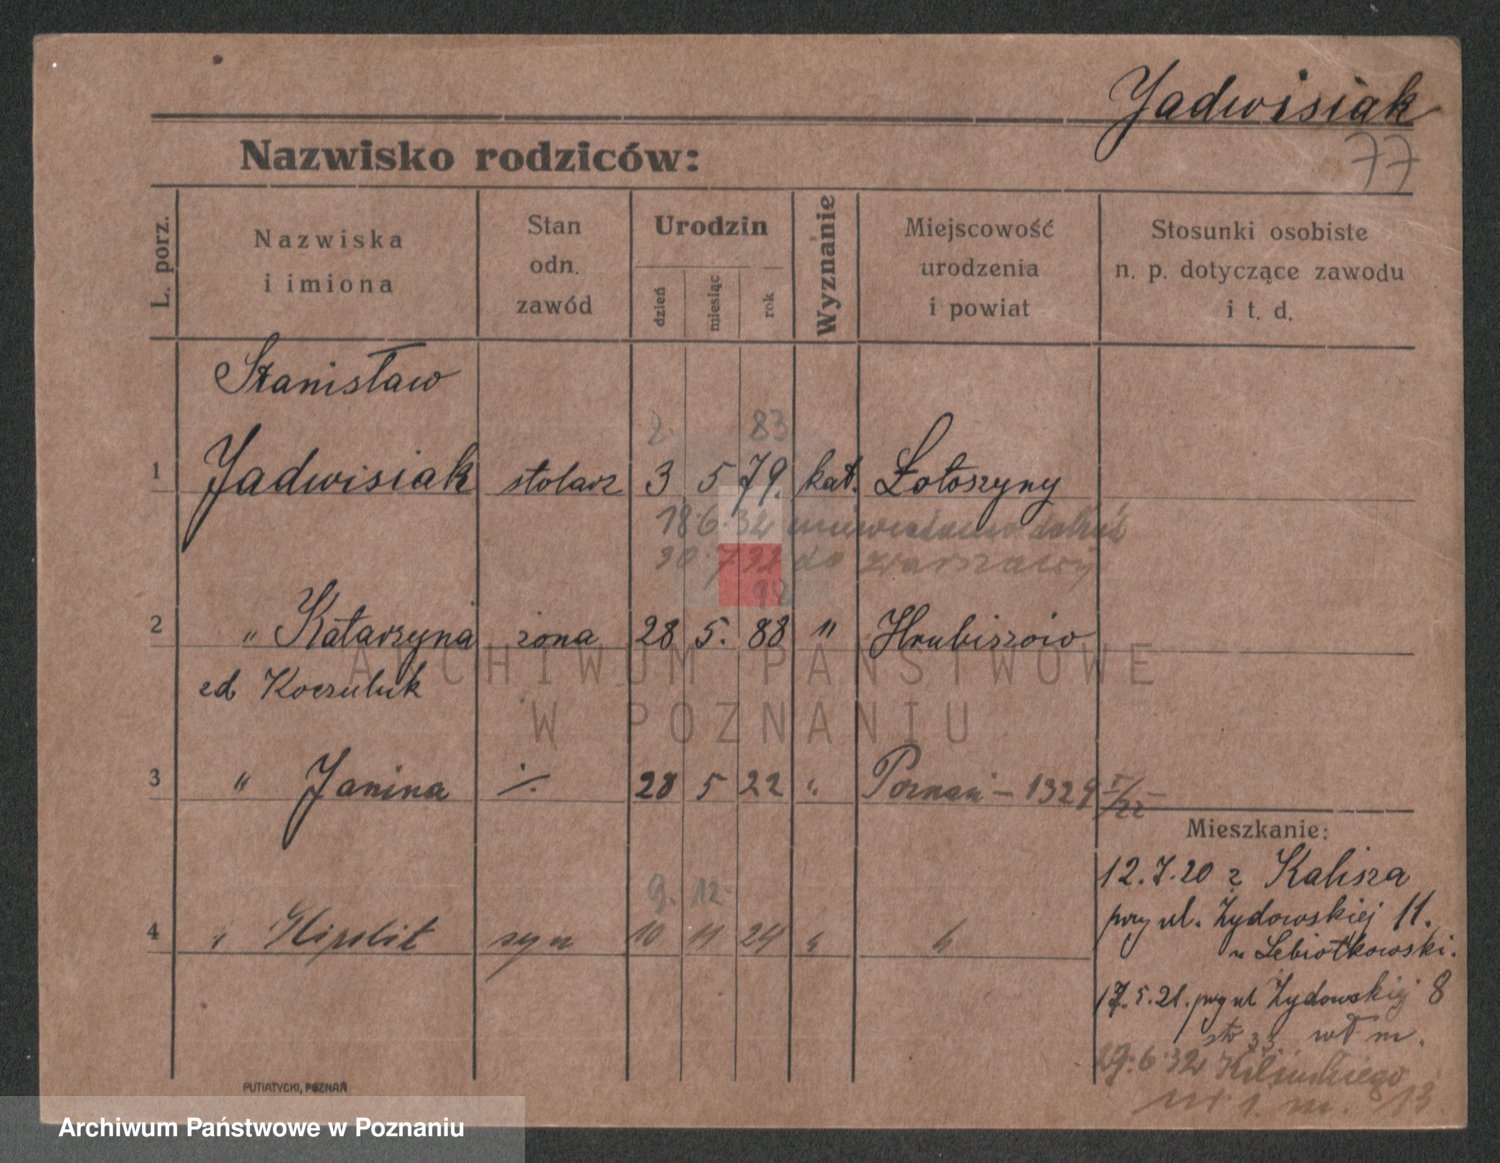 Jadwisiak
77
Nazwisko rodziców:
L. porz.
Nazwiska
i imiona
Stan
odn.
zawód
Urodzin
dzień
miesiąc
rok
Wyznanie
Miejscowość
urodzenia
i powiat
Stosunki osobiste
n. p. dotyczące zawodu
i t. d.
Stanisław
2. 83
1 Jadwisiak stolarz 3 5 79. kat. Łotoszyny
18.6.32
30.7.32 do Warszawy
92
2 " Katarzyna żona 28 5. 88 " Hrubiszów
ARCHIWUM PAŃSTWOWE
W POZNANIU
3 " Janina 28 5 22 " Poznań – 1329
Mieszkanie:
12.7.20 z Kalisza
przy ul. Żydowskiej 11.
u Lebiotkowski.
9. 12
4 " Hipolit syn 10 11 24 "
17.5.21. przy ul Żydowskiej 8
29.6.32 Kilińskiego
m. 13
PUTIATYCKI, POZNAŃ
Archiwum Państwowe w Poznaniu